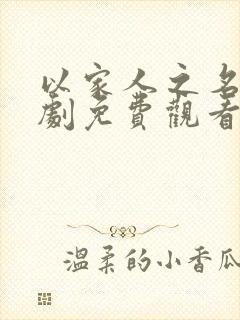 以家人之名
劇免費觀看
溫柔的小香瓜